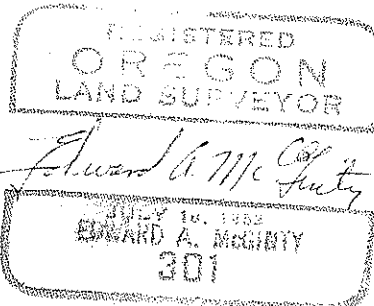 REGISTERED
OREGON
LAND SURVEYOR
Edward A. McGinty
JULY 16, 1952
EDWARD A. McGINTY
301